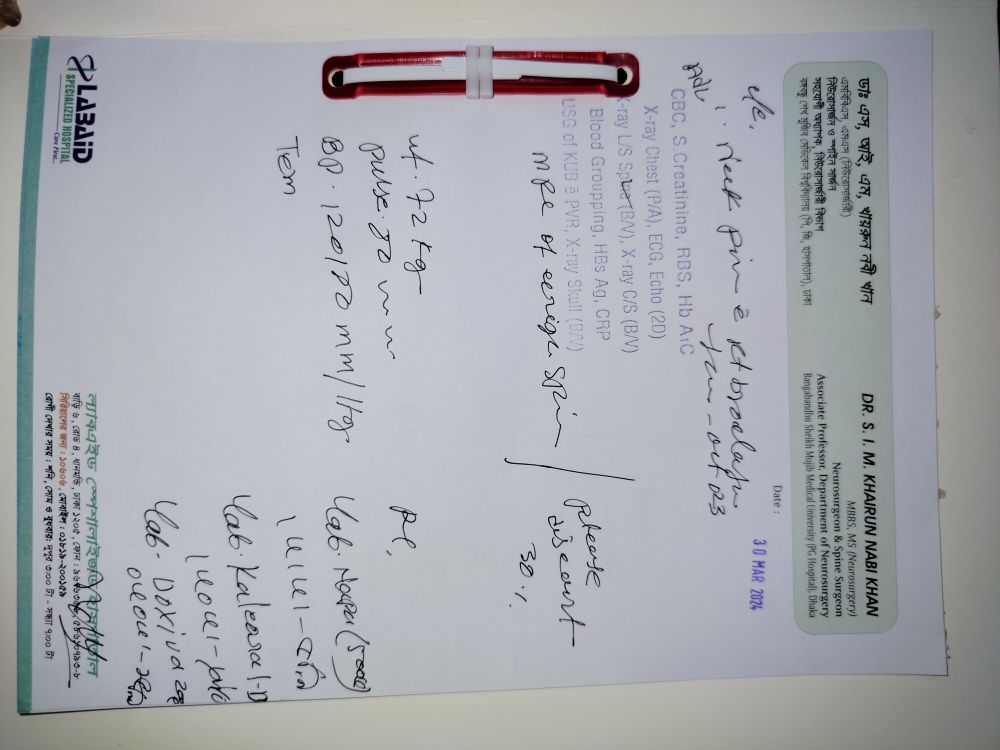 ডাঃ এস, আই, এম, খায়রুন নবী খান
এমবিবিএস, এমএস (নিউরোসার্জারী)
নিউরোসার্জন ও স্পাইন সার্জন
সহযোগী অধ্যাপক, নিউরোসার্জারী বিভাগ
বঙ্গবন্ধু শেখ মুজিব মেডিকেল বিশ্ববিদ্যালয় (পি, জি, হাসপাতাল), ঢাকা
DR. S. I. M. KHAIRUN NABI KHAN
MBBS, MS (Neurosurgery)
Neurosurgeon & Spine Surgeon
Associate Professor, Department of Neurosurgery
Bangabandhu Sheikh Mujib Medical University (PG Hospital), Dhaka
Date :
30 MAR 2024
c/c.
1. Neck pain c̄ Rt
Oct 023
Adv
CBC, S.Creatinine, RBS, Hb A1C
X-ray Chest (P/A), ECG, Echo (2D)
X-ray L/S Spine (B/V), X-ray C/S (B/V)
Blood Groupping, HBs Ag, CRP
USG of KUB ē PVR, X-ray Skull (B/V)
of spine
please
discount
30%
wt. 72 kg
pulse. 80
BP. 120/80 mm/Hg
Tem
Rx,
Tab. Napa (500)
Tab. Kalcoral-D
Tab. Doxiva 200
LABAID
SPECIALIZED HOSPITAL
Care First...
ল্যাবএইড স্পেশালাইজড হাসপাতাল
বাড়ি ৬, রোড ৪, ধানমন্ডি, ঢাকা ১২০৫, ফোন :
সিরিয়ালের জন্য : ১০৬০৬, মোবাইল : ০১৮১৯-২০০১৫৯
রোগী দেখার সময় : শনি, সোম ও বুধবার: দুপুর ৩:০০ টা - সন্ধ্যা ৭:০০ টা